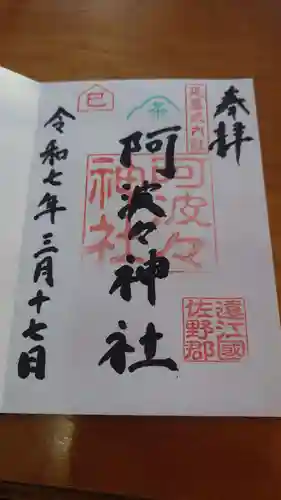 奉拝
延喜式内社
阿波々神社
阿波々
神社
遠江國
佐野郡
巳
令和七年三月十七日